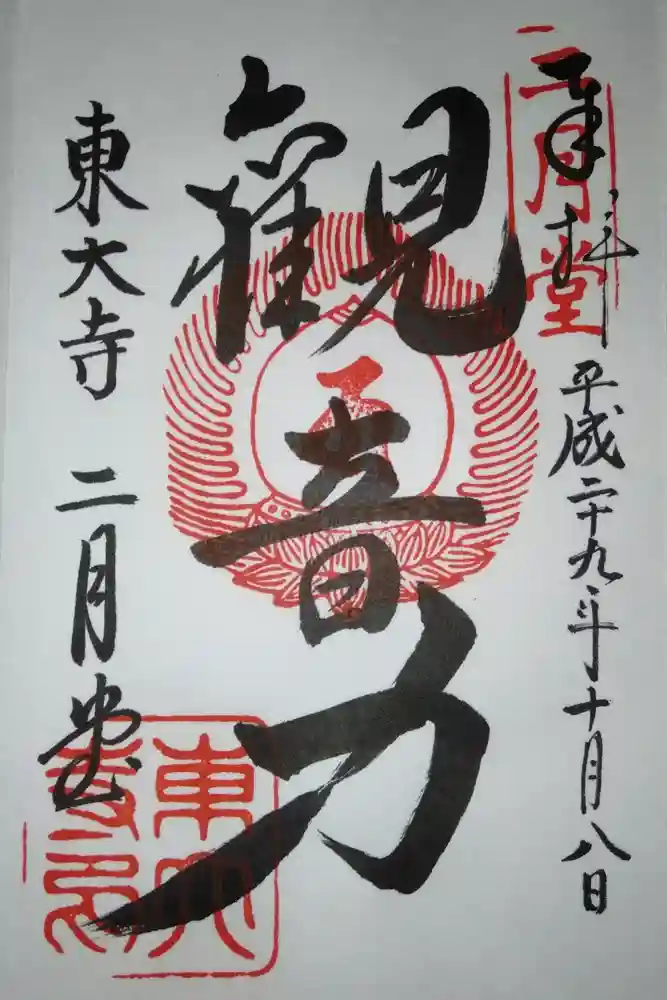 奉拝
二月堂
平成二十九年十月八日
觀音力
東大寺 二月堂
東大寺印